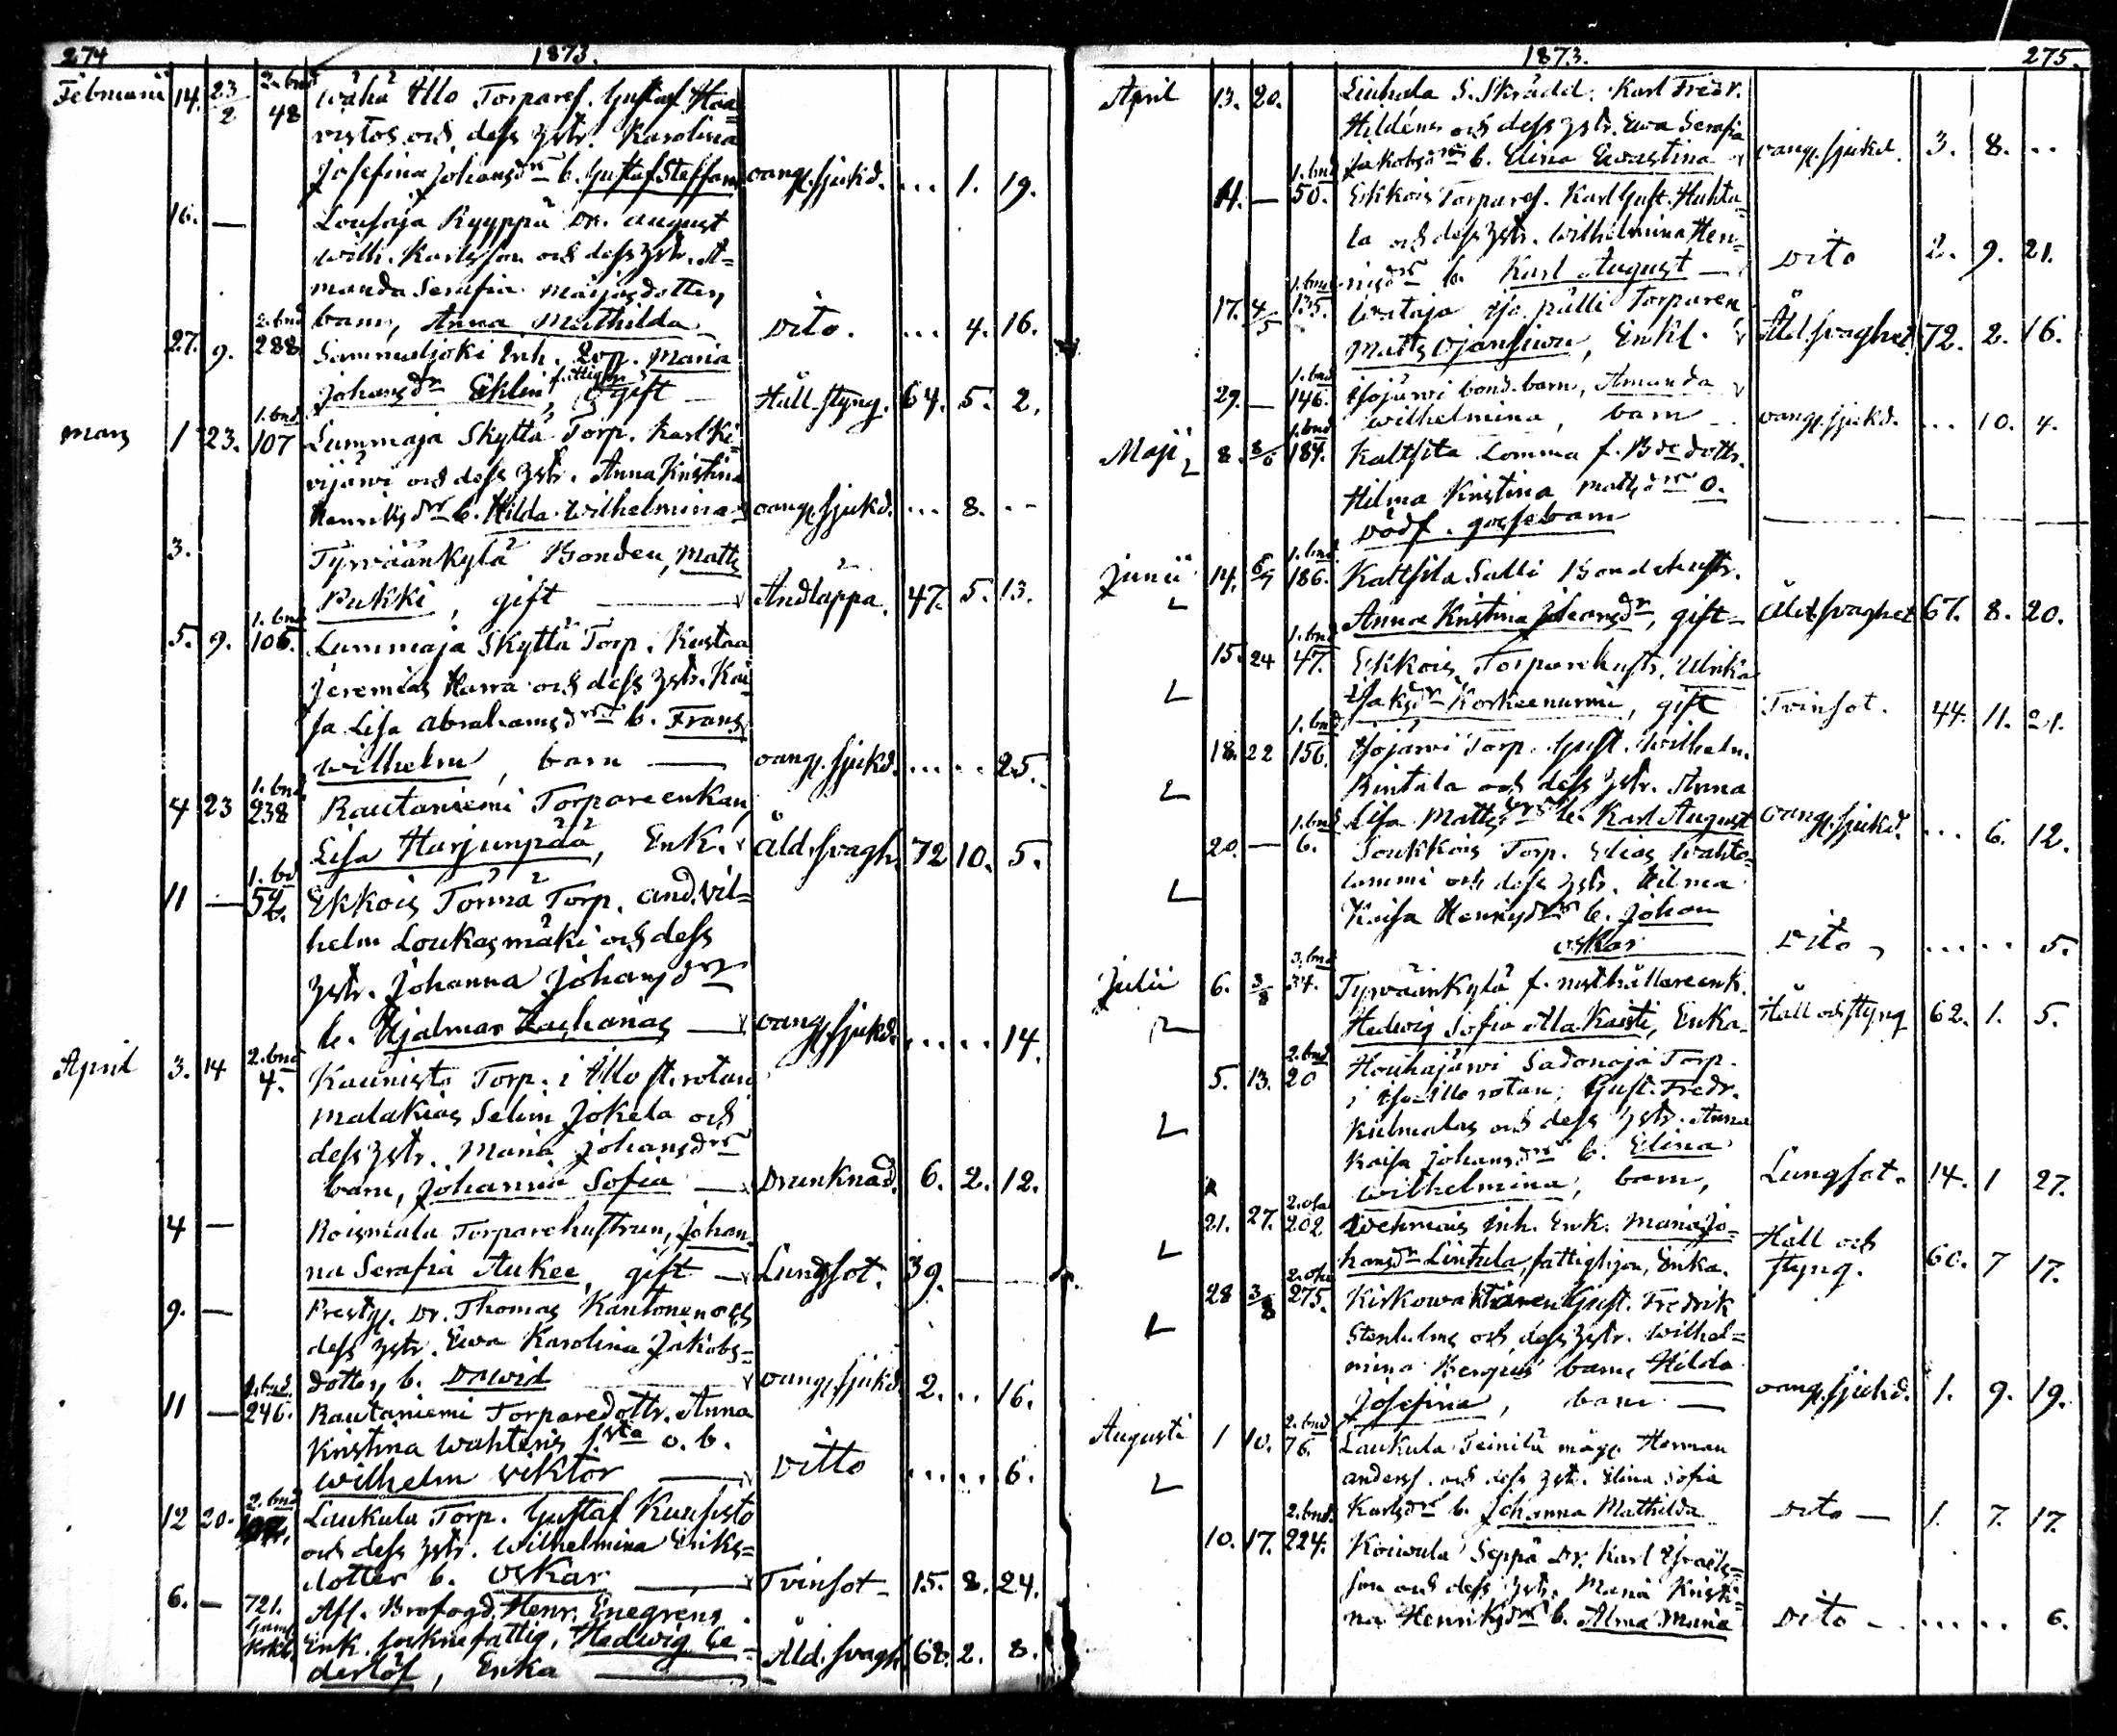 274 1873.
Februarii 14. 23/2 2. bnd 48 Wähä Illo Torparef. Gustaf Haa=
vistos och dess hstr. Karolina
Josefina Johansdr b. Gustaf Steffan oang. sjukd. ... 1. 19.
16. — Lousaja Ryyppä Dr. August
Wilh. Karlsson och dess hstr. A=
manda Serafia Maijasdotter,
barn, Anna Mathilda dito. ... 4. 16.
27. 9. 2. bnd 288 Sammaljoki Inh. Maria
Johansdr Eklin, fattighj. gift Håll. styng. 64. 5. 2.
Mars 1 23. 1. bnd 107 Lummaja Skyttä Torp. Karl Ki=
vijärvi och dess hstr. Anna Kristina
Henriksdr b. Hilda Wilhelmina oang. sjukd. ... 8. ..
3. Tyrväänkylä Bonden, Matts
Pukki, gift — Andtäppa. 47. 5. 13.
5. 9. 1. bnd 106. Lummaja Skyttä Torp. Kustaa
Jeremias Harra och dess hstr. Kai
sa Lisa Abrahamsdr b. Frans
Wilhelm, barn — oang. sjukd. ... .. 25.
4 23 1. bnd 238 Rautaniemi Torpareenkan,
Lisa Harjunpää, Enk. Åld. svagh. 72 10. 5.
11 — 1. bd 52. Ekkois Törmä Torp. And. Vil=
helm Loukasmäki och dess
hstr. Johanna Johansdr
b. Hjalmar Zachanas — oang. sjukd. ... .. 14.
April 3. 14 2. bnd 4. Kaunisto Torp. i Illo st. rotan
Malakias Selim Jokela och
dess hstr. Maria Johansdr
barn, Johanna Sofia — Drunknad. 6. 2. 12.
4 — Roismala Torparehustrun, Johan=
na Serafia Aukee, gift — Lungsot. 39. — —
9. — Prestg. Dr. Thomas Kantonen och
dess hstr. Ewa Karolina Jakobs=
dotter, b. David oang. sjukd. 2. .. 16.
11 — 1. bnd. 246. Rautaniemi Torparedottr. Anna
Kristina Wahteris o. b.
Wilhelm Viktor — ditto ... .. 6.
12 20. 2. bnd Laukula Torp. Gustaf Kuusisto
och dess hstr. Wilhelmina Eriks=
dotter b. Oskar — Tvinsot 15. 8. 24.
6. — 721. Afl. Brofogd. Henr. Enegrens
Enk. socknefattig, Hedvig Ce=
derlöf, Enka — Åld. svagh. 68. 2. 8.
1873. 275.
April 13. 20. Liuhala S. Skrädd. Karl Fredr.
Hildéns och dess hstr. Ewa Serafia
Jakobsdr b. Elina Ewastina oang. sjukd. 3. 8. ..
11. — 1. bnd 50. Ekkois Torparef. Karl Gust. Huhta=
la och dess hstr. Wilhelmina Hen=
riksdr b. Karl August — dito 2. 9. 21.
17. 4/5 1. bnd 135. Wataja Ojanpälli Torparen,
Matts Ojansivu, Enkl. Åld. svaghet 72. 2. 16.
29. — 1. bnd 146. Isojärvi bond. barn, Amanda
Wilhelmina, barn oang. sjukd. ... 10. 4.
Maji 8. 8/6 1. bnd 184. Kaltsila Lomma f. Bde dottr.
Hilma Kristina Mattsdr o.
dödf. gossebarn
Junii 14. 6/7 1. bnd 186. Kaltsila Salli Bondehustr.
Anna Kristina Johansdr, gift — Åld. svaghet 67. 8. 20.
15. 24 1. bnd 47. Ekkois Torparehustr. Ulrika
Isaksdr Korkeenurmi, gift Tvinsot. 44. 11. 21.
18. 22 1. bnd 156. Isojärvi Torp. Gust. Wilhelm
Rintala och dess hstr. Anna
Lisa Mattsdr b. Karl August oang. sjukd. ... 6. 12.
20. — 1. bnd 6. Soukkois Torp. Elias Wahto=
lammi och dess hstr. Hilma
Kaisa Henriksdr b. Johan
Oskar dito ... .. 5.
Julii 6. 3/8 3. bnd 34. Tyrväänkylä f. mathållareenk.
Hedvig Sofia Ala Kaisti, Enka. Håll och styng 62. 1. 5.
5. 13. 2. bnd 20 Houhajärvi Sadonoja Torp.
i Iso Illo rotan, Gust. Fredr.
Kulmalas och dess hstr. Anna
Kaisa Johansdr b. Elina
Wilhelmina, barn, Lungsot. 14. 1 27.
21. 27. 202 Wehmais Inh. Enk. Maria Jo=
hansdr Lintula, fattighjon, Enka. Håll och
styng. 60. 7 17.
28 3/8 275. Kirkowaktären Gust. Fredrik
Stenholms och dess hstr. Wilhel=
mina Bergus barn, Hilda
Josefina, barn — oang. sjukd. 1. 9. 19.
Augusti 1 10. 2. bnd 76. Laukula Teinilä måg. Herman
Anderss. och dess hstr. Elina Sofia
Karlsdr b. Johanna Mathilda dito — 1. 7. 17.
10. 17. 2. bnd. 224. Koiwula Seppä Dr. Karl Israels=
son och dess hstr. Maria Kristi=
na Henriksdr b. Alma Maria dito — ... .. 6.